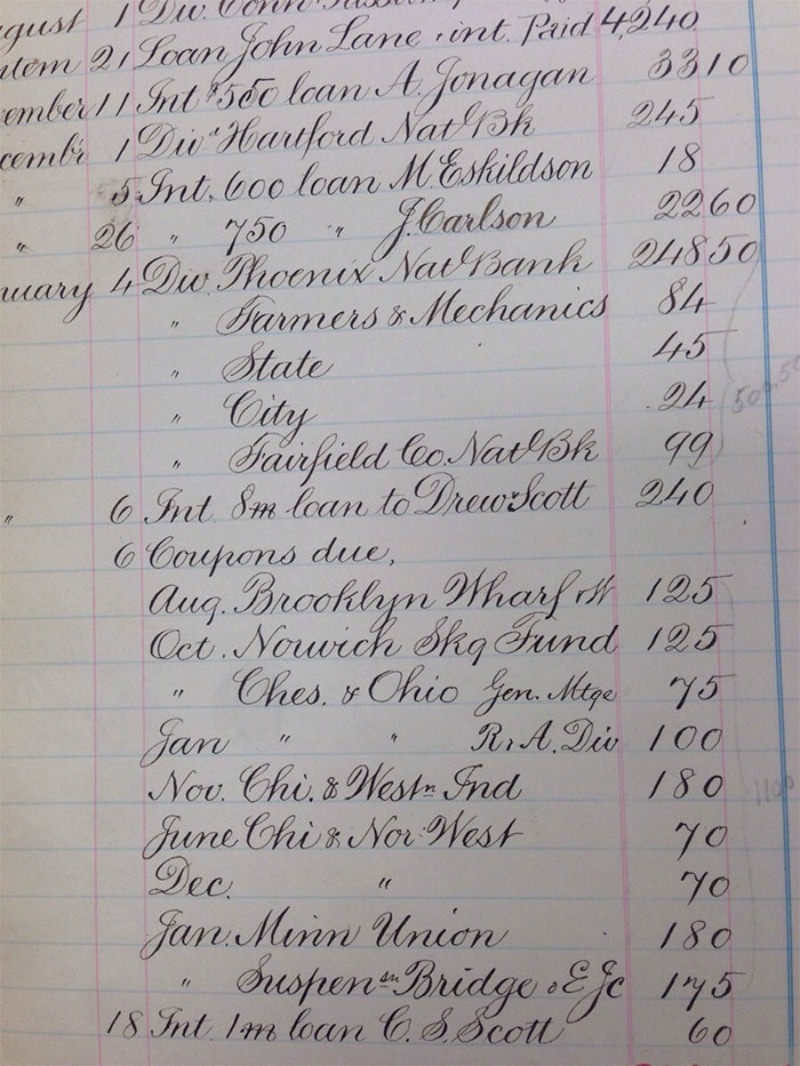 gust 1 Div. Conn
tem 21 Loan John Lane & int. Paid 4,240
ember 11 Int $550 loan A. Jonagan 33 10
cembr 1 Divd Hartford Natl Bk 245
" 5 Int. 600 loan M. Eskildson 18
" 26 " 750 " J. Carlson 22 60
nuary 4 Div. Phoenix Natl Bank 248 50
" Farmers & Mechanics 84
" State 45
" City 24
" Fairfield Co. Natl Bk 99
" 6 Int 8m loan to Drew & Scott 240
6 Coupons due,
Aug. Brooklyn Wharf & W 125
Oct. Norwich Skg Fund 125
" Ches. & Ohio Gen. Mtge 75
Jan " " R. & A. Div 100
Nov. Chi. & Westn Ind 180
June Chi & Nor. West 70
Dec. " 70
Jan. Minn Union 180
" Suspensn Bridge & E Jc 175
18 Int. 1m loan C. S. Scott 60
1100